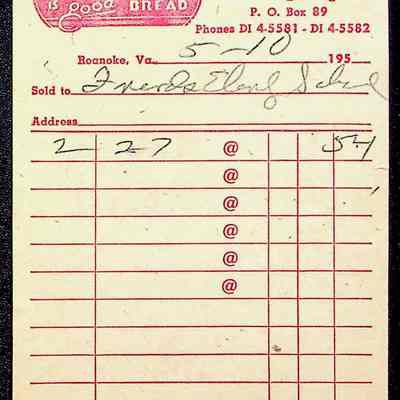 is good BREAD
P. O. Box 89
Phones DI 4-5581 - DI 4-5582
Roanoke, Va. 5-10 195
Sold to
Address
2 27 @ 54
@
@
@
@
@